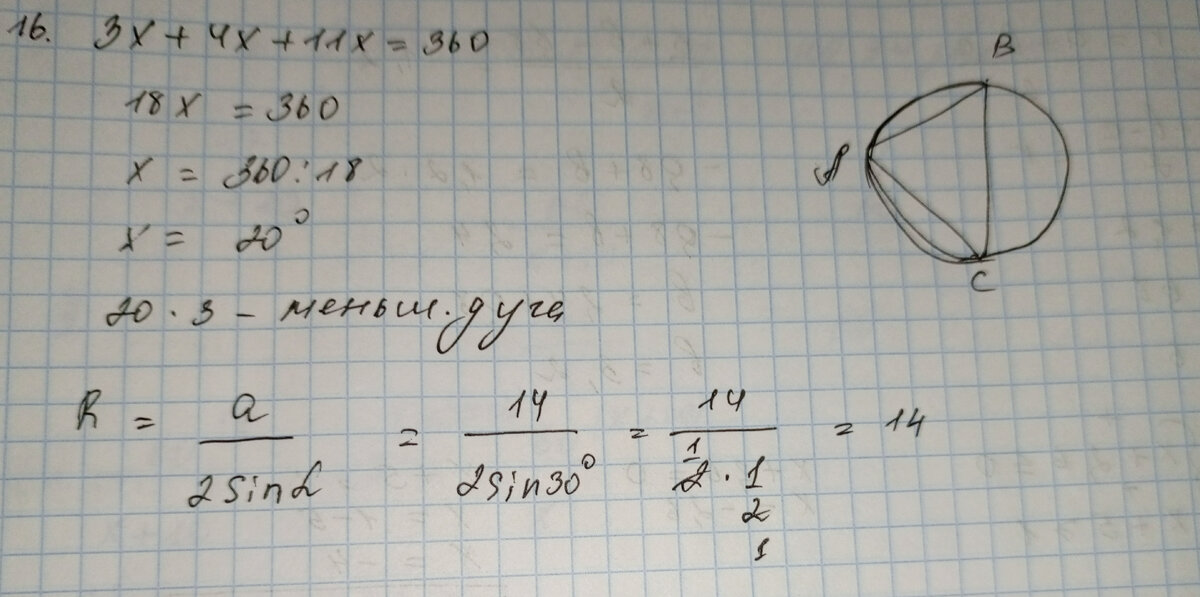 16. 3x + 4x + 11x = 360
18x = 360
x = 360 : 18
x = 20°
20 · 3 – меньш. дуга
R = a / 2 sin α = 14 / 2 sin 30° = 14 / 2 · 1/2 = 14
1
1
B
A
C